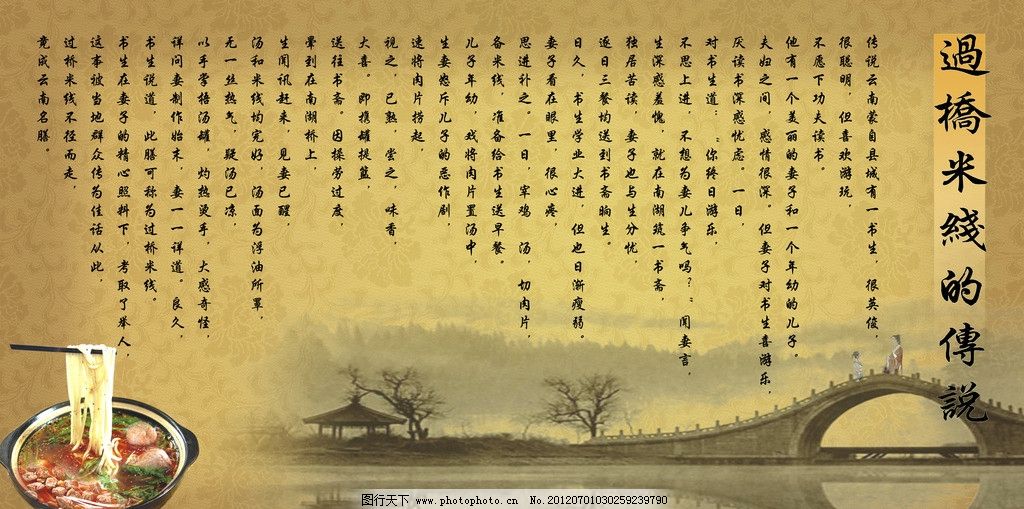 過橋米綫的傳説
传说云南蒙自县城有一书生，很英俊，
很聪明，但喜欢游玩，
不愿下功夫读书。
他有一个美丽的妻子和一个年幼的儿子。
夫妇之间，感情很深。但妻子对书生喜游乐，
厌读书深感忧虑。一日，
对书生道：“你终日游乐，
不思上进，不想为妻儿争气吗？”闻妻言，
生深感羞愧，就在南湖筑一书斋，
独居苦读，妻子也与生分忧，
逐日三餐均送到书斋晌生。
日久，书生学业大进，但也日渐瘦弱。
妻子看在眼里，很心疼，
思进补之。一日，宰鸡 汤，切肉片，
备米线，准备给书生送早餐。
儿子年幼，戏将肉片置汤中，
生妻怒斥儿子的恶作剧，
速将肉片捞起，
视之，已熟，尝之，味香，
大喜。即携罐提篮，
送往书斋。因操劳过度，
晕到在南湖桥上，
生闻讯赶来，见妻已醒，
汤和米线均完好，汤面为浮油所罩，
无一丝热气，疑汤已凉，
以手掌捂汤罐，灼热烫手，大感奇怪，
详问妻制作始末，妻一一详道。良久，
书生说道，此膳可称为过桥米线。
书生在妻子的精心照料下，考取了举人，
这事被当地群众传为佳话从此，
过桥米线不径而走，
竟成云南名膳。
图行天下 www.photophoto.cn No.20120701030259239790